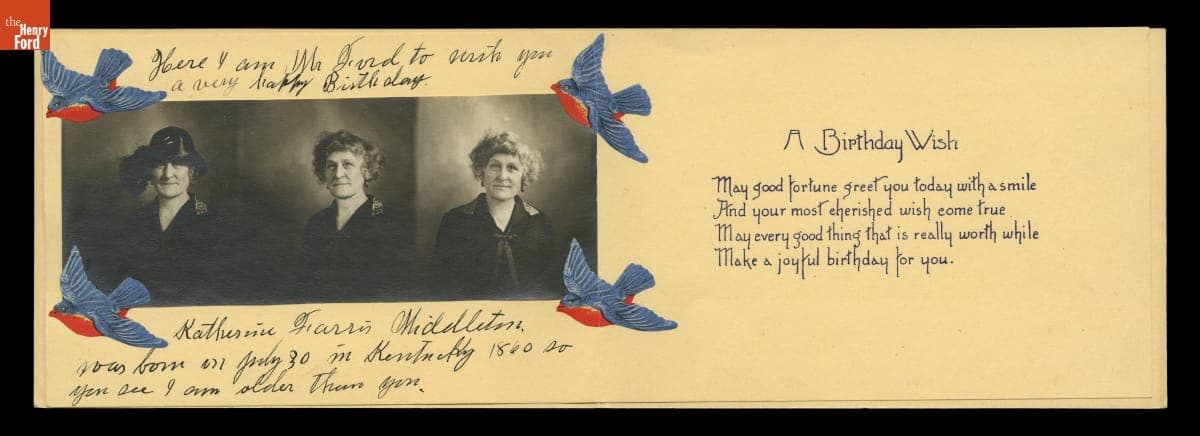 the
Henry
Ford
Here I am Mr Ford to wish you
a very happy Birthday.
Katherine Farris Middleton.
was born on July 30 in Kentucky 1860 so
you see I am older than you.
A Birthday Wish
May good fortune greet you today with a smile
And your most cherished wish come true
May every good thing that is really worth while
Make a joyful birthday for you.